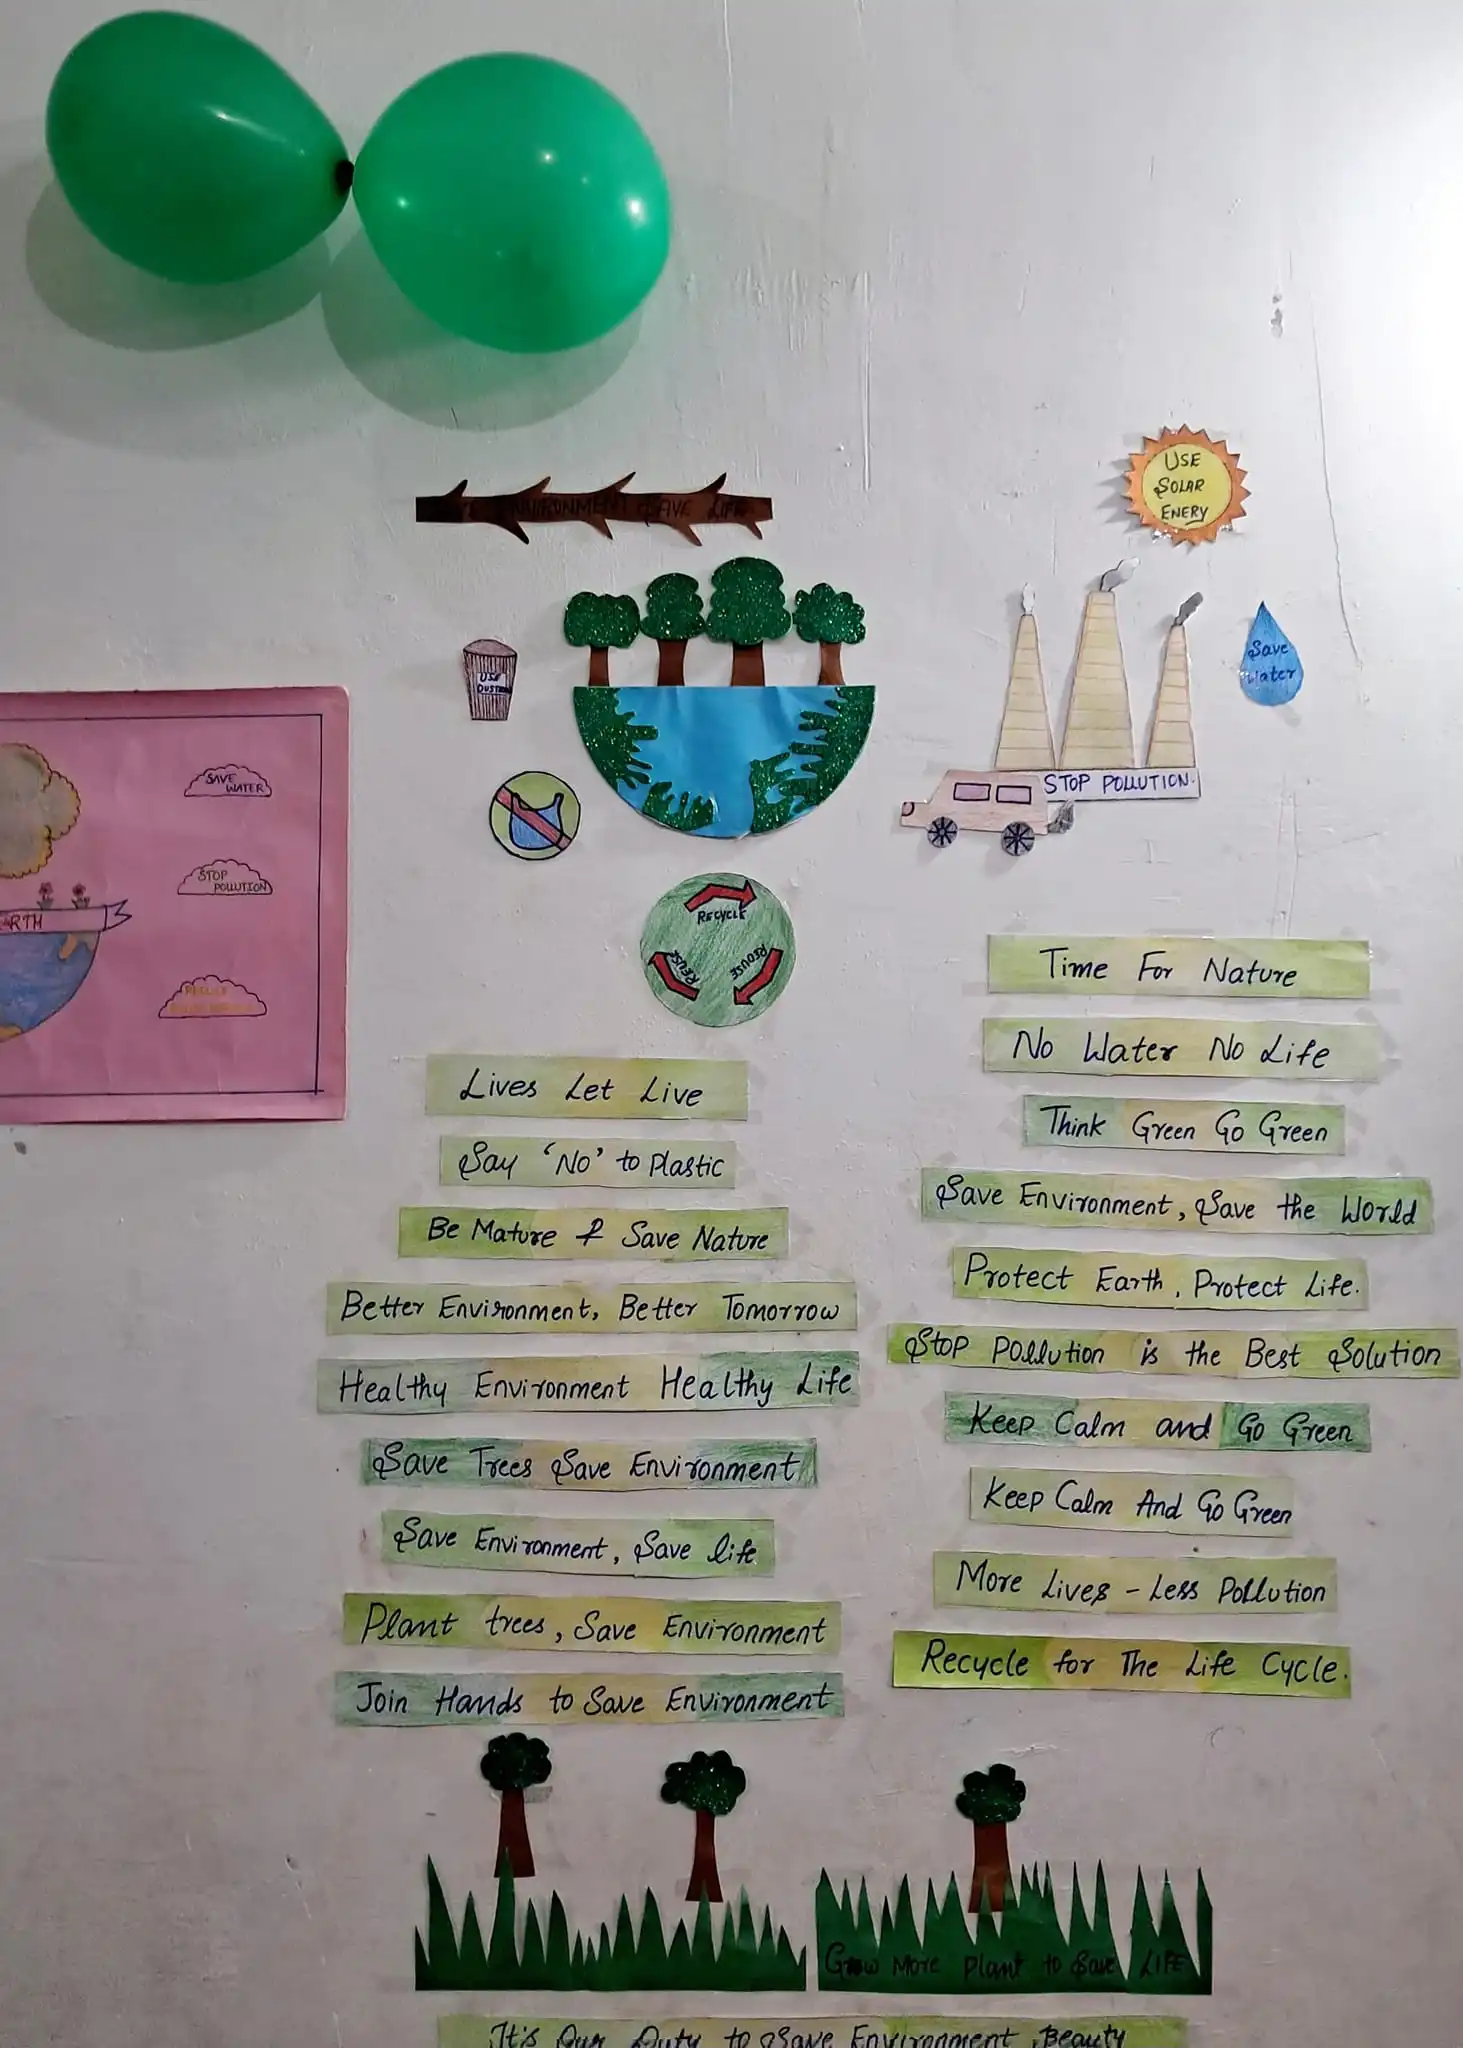 ENVIRONMENT SAVE LIFE
USE
SOLAR
ENERY
USE
DUSTBIN
Save
Water
STOP POLLUTION.
SAVE
WATER
STOP
POLLUTION
ARTH
REDUCE
RECYCLE
REDUSE
REUSE
Lives Let Live
Say 'No' to Plastic
Be Mature & Save Nature
Better Environment, Better Tomorrow
Healthy Environment Healthy Life
Save Trees Save Environment
Save Environment, Save life
Plant trees, Save Environment
Join Hands to Save Environment
Time For Nature
No Water No Life
Think Green Go Green
Save Environment, Save the World
Protect Earth, Protect Life.
Stop Pollution is the Best Solution
Keep Calm and Go Green
Keep Calm And Go Green
More Lives - Less Pollution
Recycle for The Life Cycle.
Grow More plant to Save LIFE
It's Our Duty to Save Environment Beauty